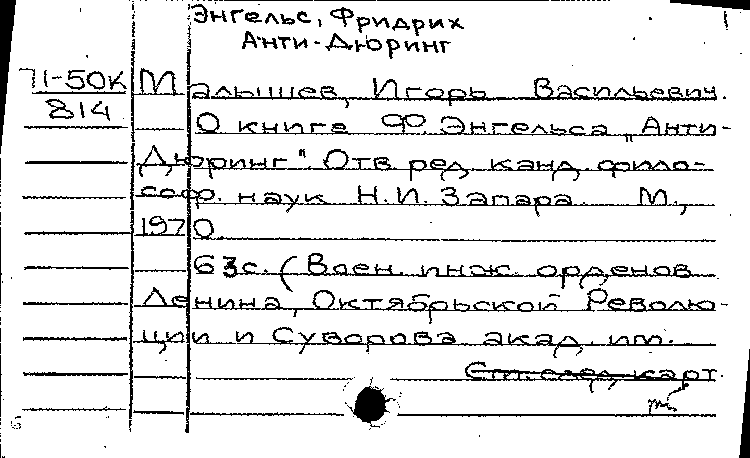 Энгельс, Фридрих
Анти-Дюринг
71-50К
814
Малышев, Игорь Васильевич.
О книге Ф. Энгельса „Анти-
Дюринг" Отв ред. канд. фило-
соф. наук Н.И. Запара М.,
1970.
63с. (Воен. инж. орденов
Ленина, Октябрьской Револю-
ции и Суворова акад. им.
См. след. карт.